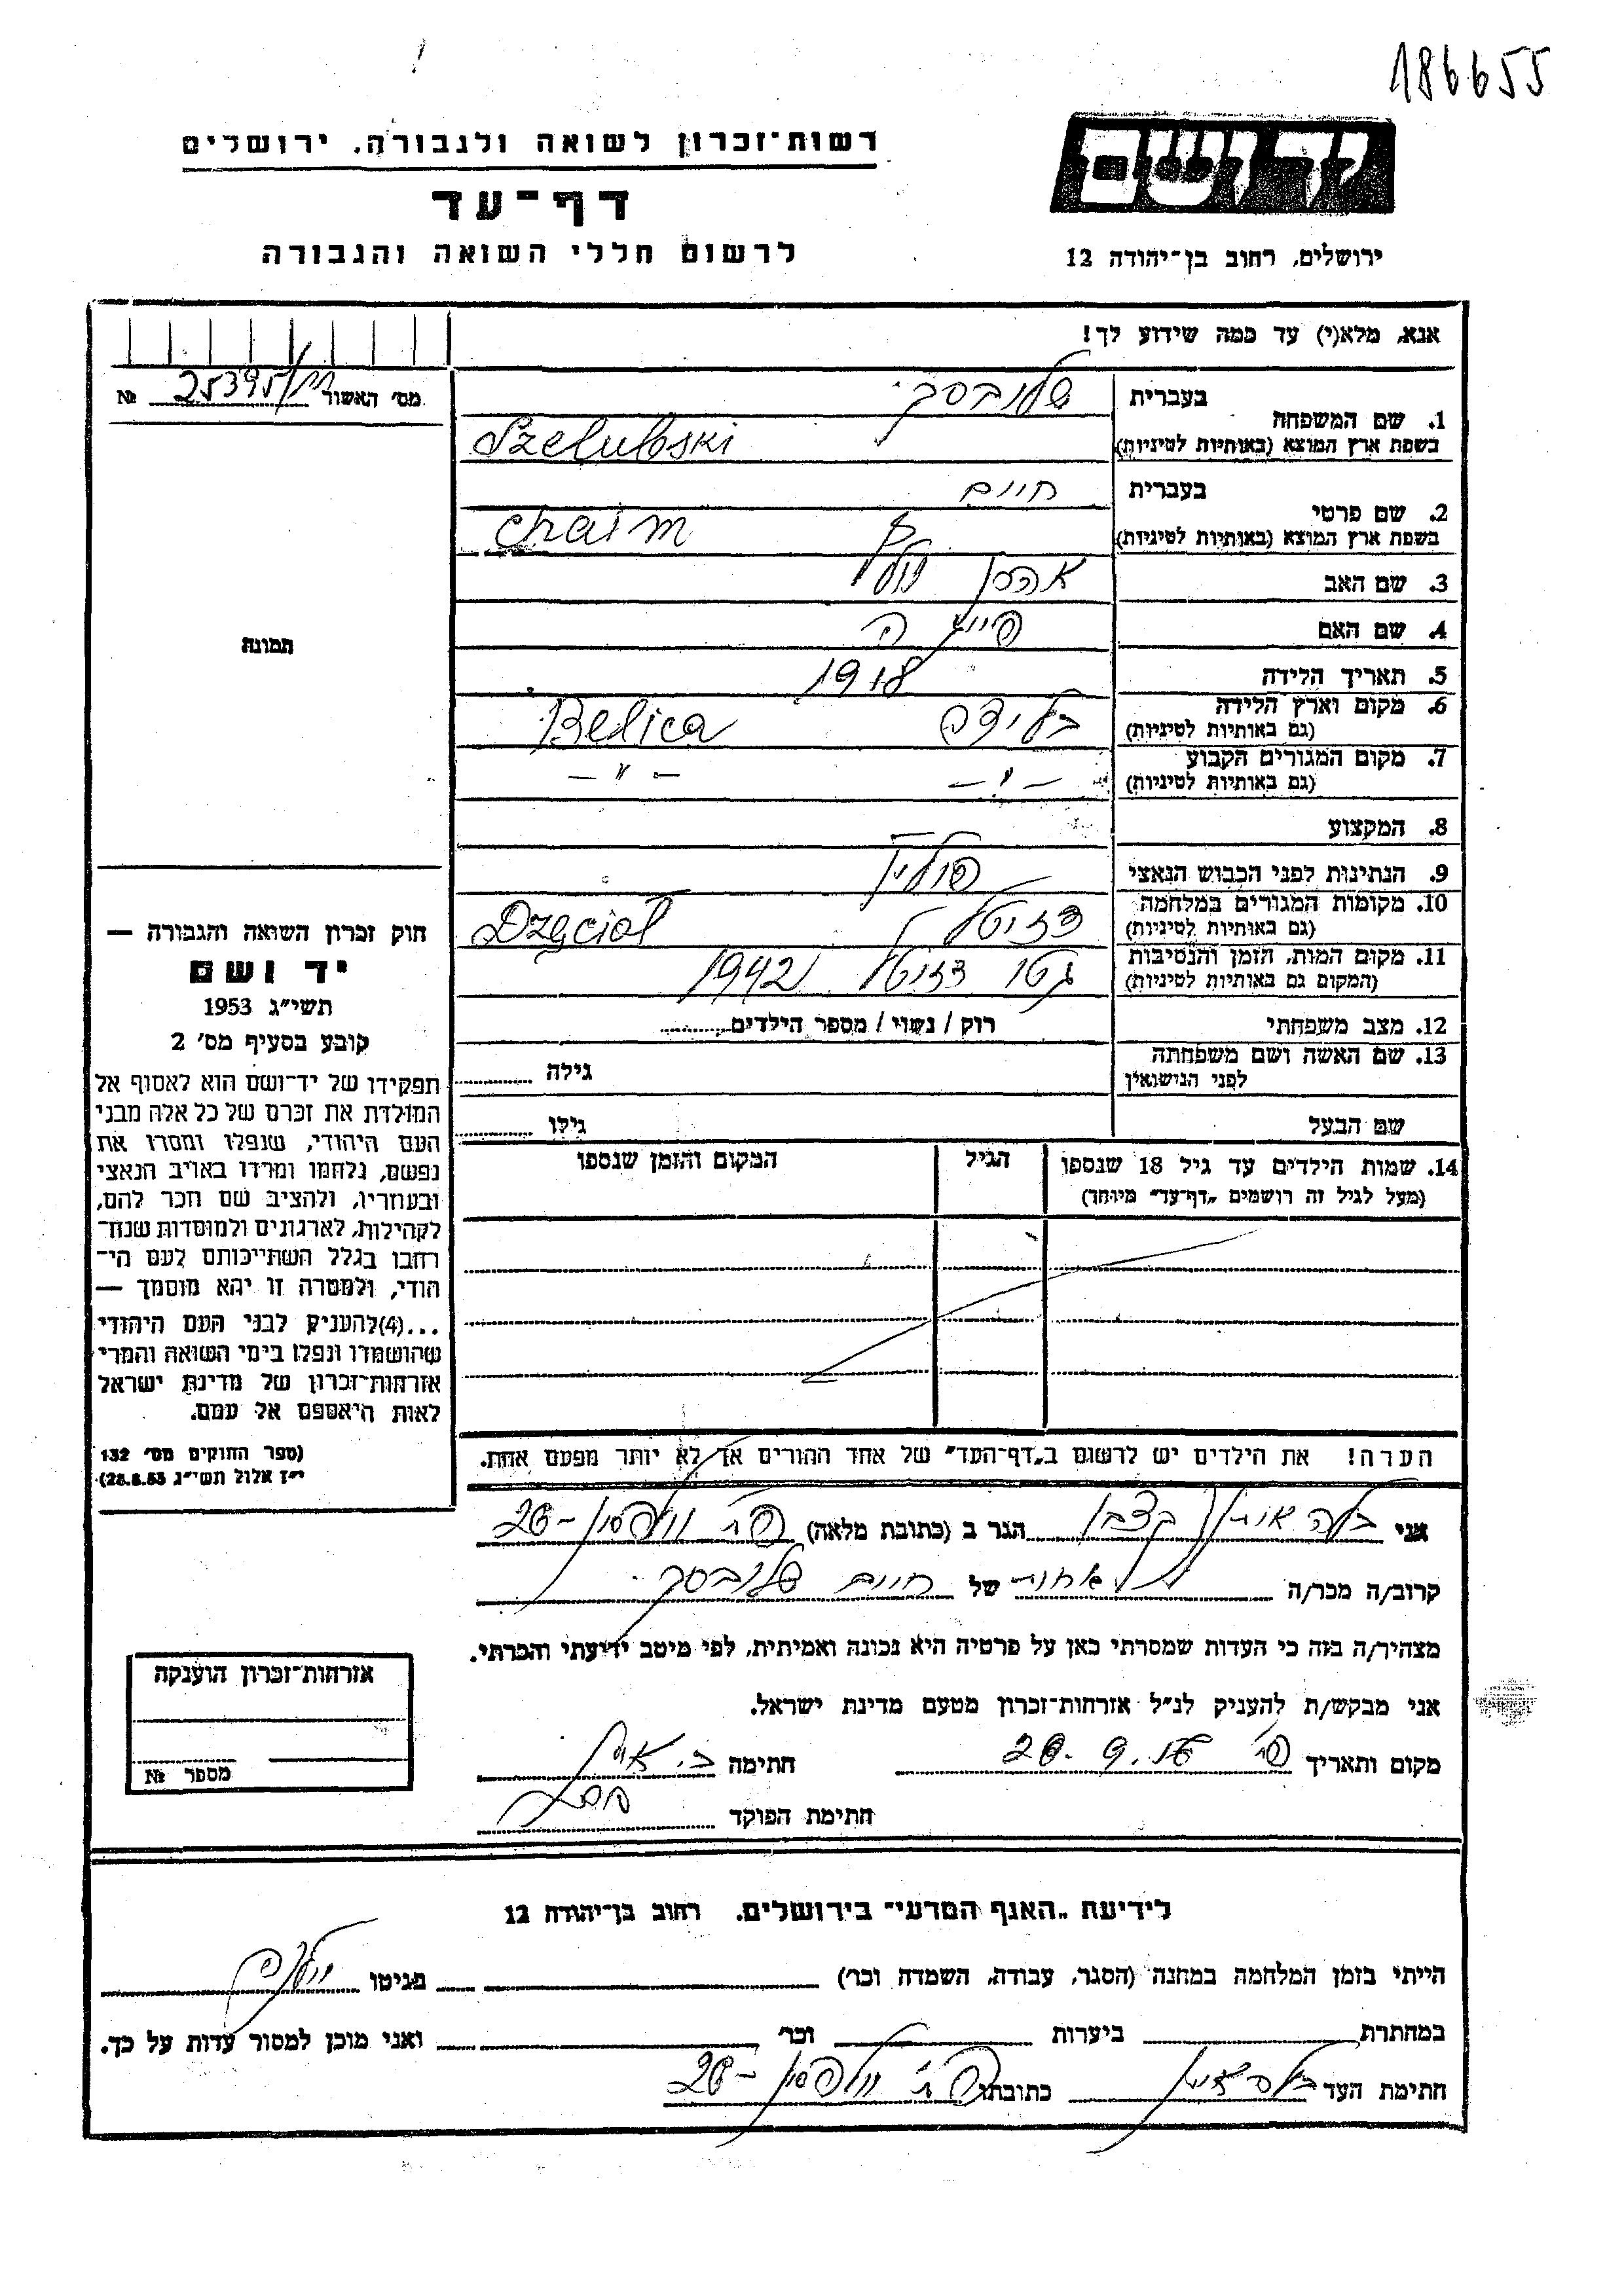 186655
יד ושם
רשות־זכרון לשואה ולגבורה, ירושלים
דף־עד
לרשום חללי השואה והגבורה
ירושלים, רחוב בן־יהודה 12
אנא, מלא(י) עד כמה שידוע לך!
מס׳ האשור 25395 №
1. שם המשפחה בעברית שלובסקי
בשפת ארץ המוצא (באותיות לטיניות) Szelubski
2. שם פרטי בעברית חיים
בשפת ארץ המוצא (באותיות לטיניות) chaim
3. שם האב אהרן
4. שם האם
5. תאריך הלידה 1918
6. מקום וארץ הלידה (גם באותיות לטיניות) בליצה Belica
7. מקום המגורים הקבוע (גם באותיות לטיניות) -"- -"-
8. המקצוע
9. הנתינות לפני הכבוש הנאצי פולין
10. מקומות המגורים במלחמה (גם באותיות לטיניות) דזיטל Dzęcioł
11. מקום המות, הזמן והנסיבות (המקום גם באותיות לטיניות) גטו דזיטל 1942
12. מצב משפחתי רוק / נשוי / מספר הילדים
13. שם האשה ושם משפחתה לפני הנישואין גילה
שם הבעל גילו
14. שמות הילדים עד גיל 18 שנספו (מעל לגיל זה רושמים „דף־עד״ מיוחד) הגיל המקום והזמן שנספו
תמונה
חוק זכרון השואה והגבורה —
יד ושם
תשי״ג 1953
קובע בסעיף מס׳ 2
תפקידו של יד־ושם הוא לאסוף אל
המולדת את זכרם של כל אלה מבני
העם היהודי, שנפלו ומסרו את
נפשם, נלחמו ומרדו באויב הנאצי
ובעוזריו, ולהציב שם וזכר להם,
לקהילות, לארגונים ולמוסדות שנח־
רבו בגלל השתייכותם לעם הי־
הודי, ולמטרה זו יהא מוסמך —
...(4) להעניק לבני העם היהודי
שהושמדו ונפלו בימי השואה והמרי
אזרחות־זכרון של מדינת ישראל
לאות היאספם אל עמם.
(ספר החוקים מס׳ 132
י״ז אלול תשי״ג 28.8.53)
הערה! את הילדים יש לרשום ב„דף־העד״ של אחד ההורים אך לא יותר מפעם אחת.
אני בלה הגר ב (כתובת מלאה) וולפסון 26-
קרוב/ה מכר/ה אחות של חיים שלובסקי
מצהיר/ה בזה כי העדות שמסרתי כאן על פרטיה היא נכונה ואמיתית, לפי מיטב ידיעתי והכרתי.
אני מבקש/ת להעניק לנ״ל אזרחות־זכרון מטעם מדינת ישראל.
מקום ותאריך חתימה
חתימת הפוקד
אזרחות־זכרון הוענקה
מספר №
לידיעת „האגף המדעי״ בירושלים, רחוב בן־יהודה 12
הייתי בזמן המלחמה במחנה (הסגר, עבודה, השמדה וכו׳) בגיטו
במחתרת ביערות וכו׳ ואני מוכן למסור עדות על כך.
חתימת העד כתובתו וולפסון 26-